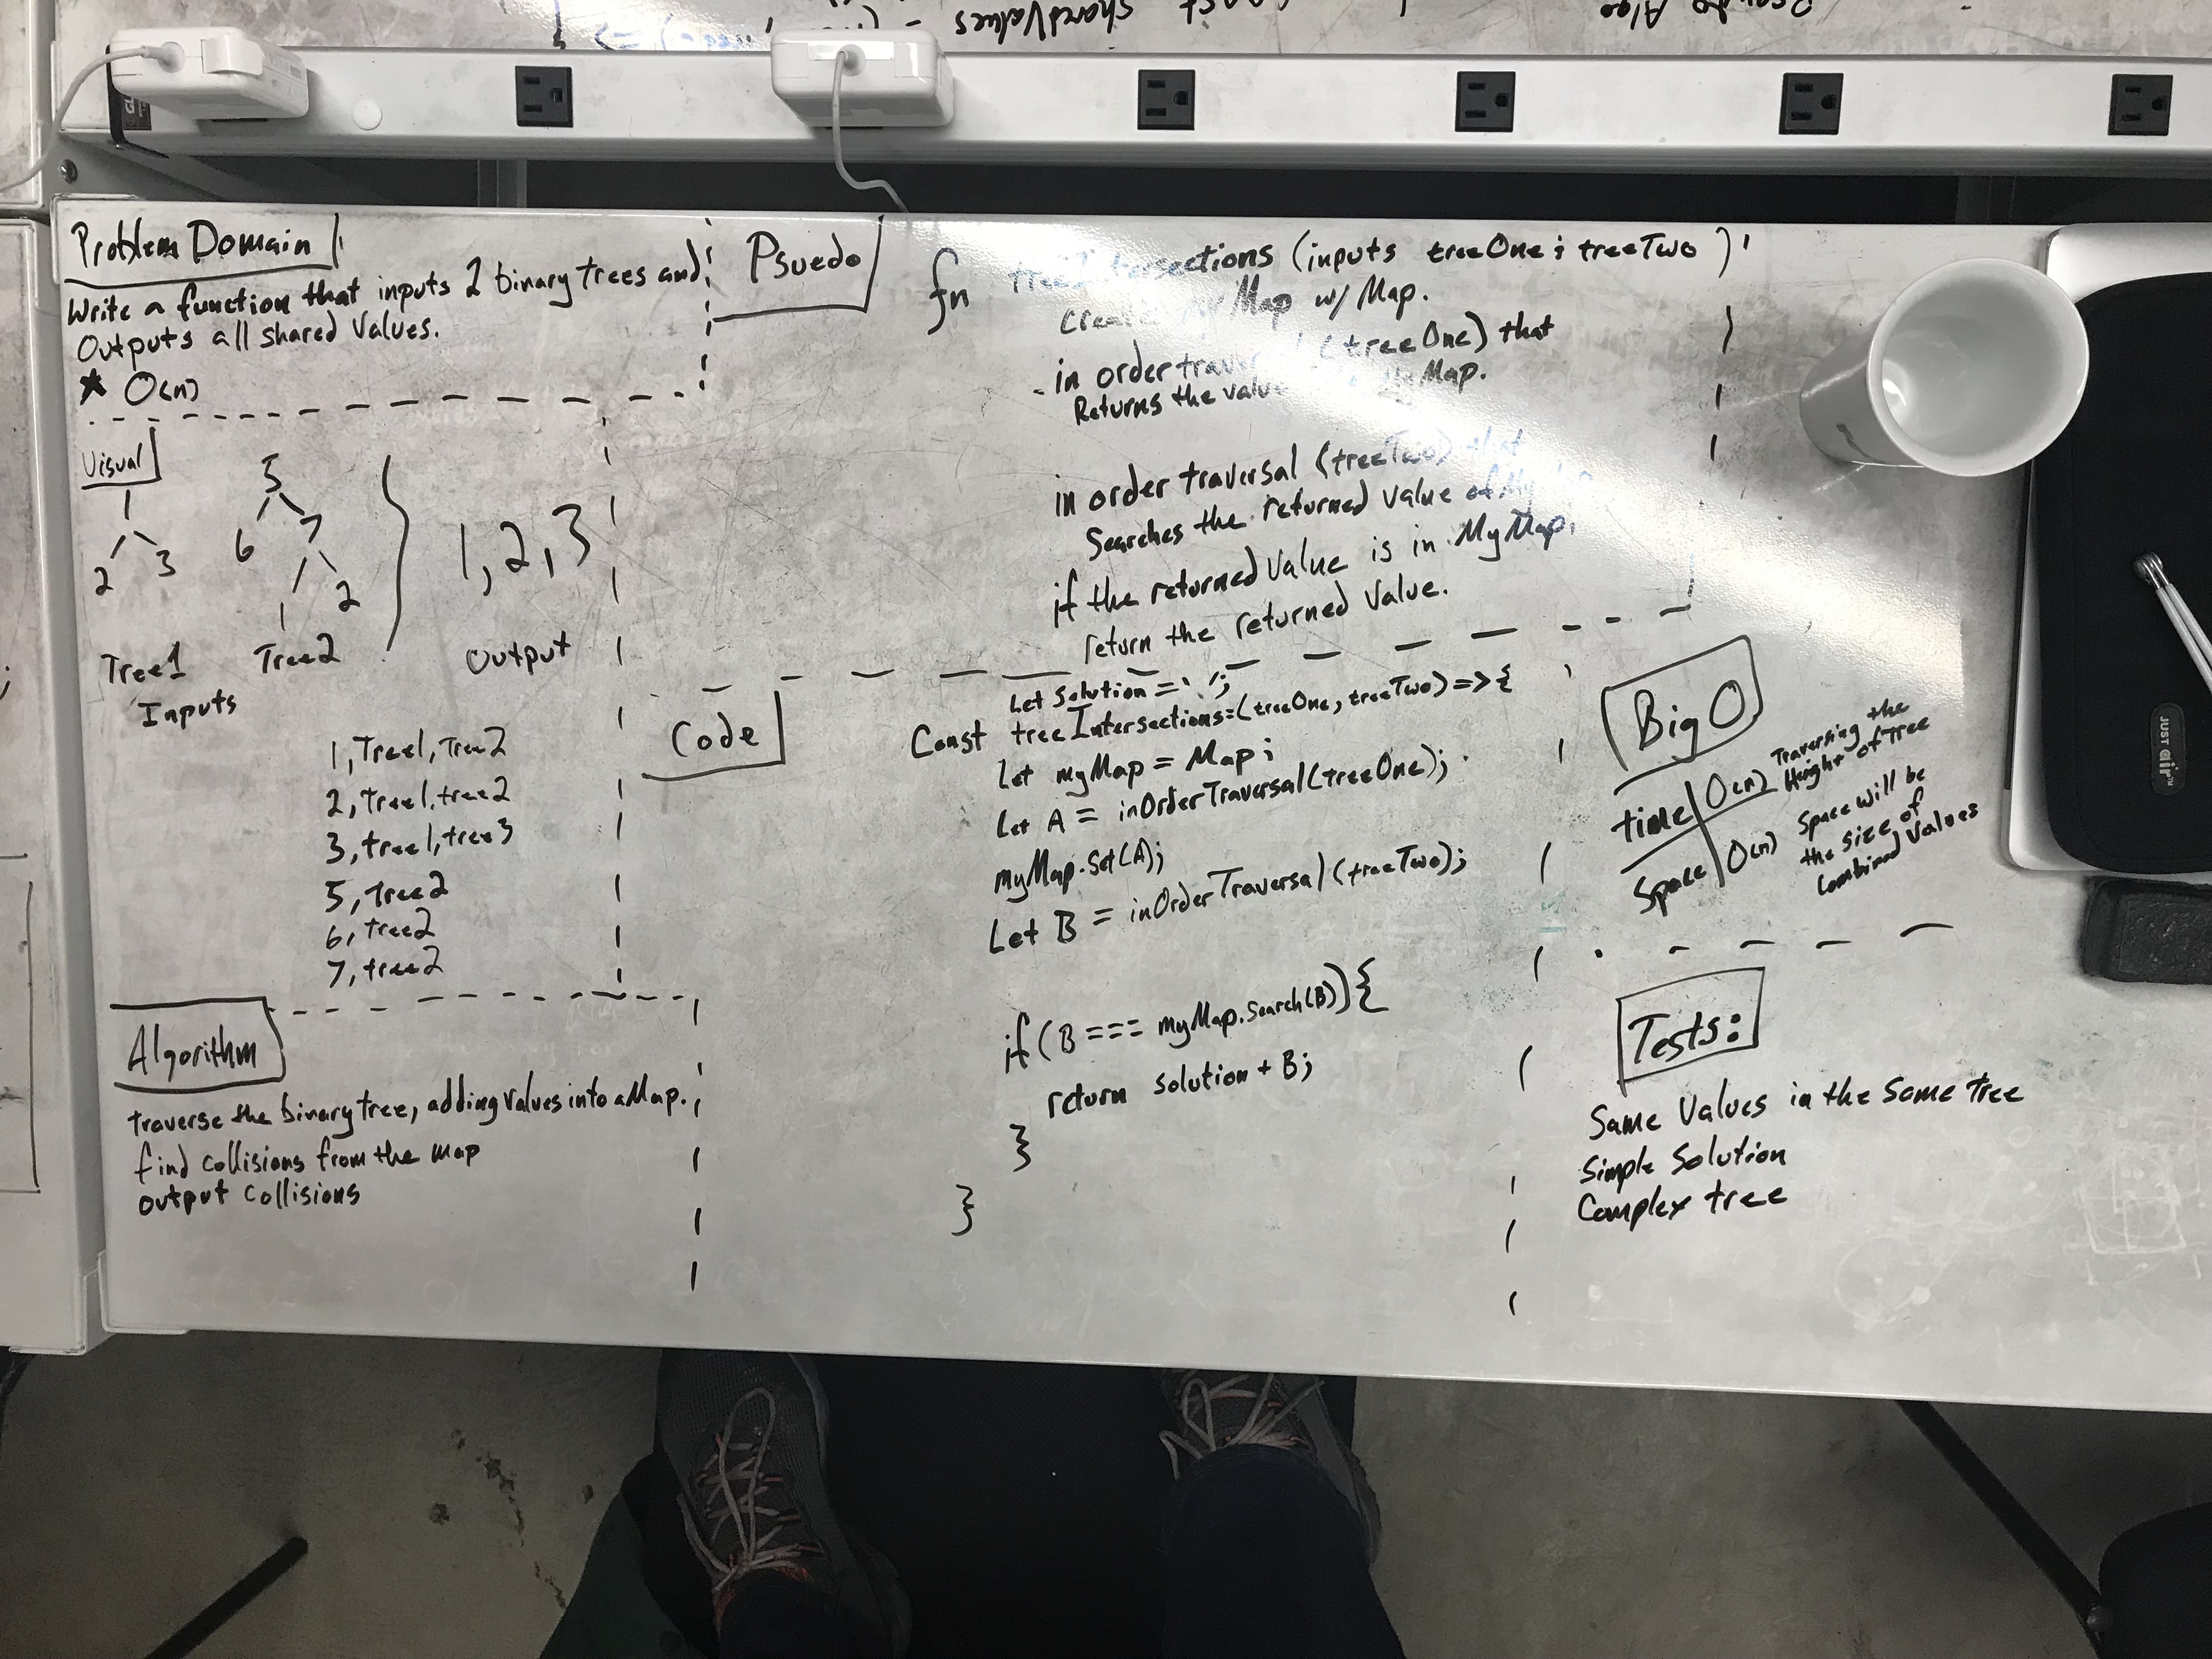 sharedValues
Algo
Problem Domain
Write a function that inputs 2 binary trees and
Outputs all shared values.
★ O(n)
Visual
1
2 3
Tree1
5
6 7
1 2
Tree2
Inputs
1, 2, 3
Output
1, Tree1, Tree2
2, Tree1, tree2
3, tree1, tree3
5, Tree2
6, tree2
7, tree2
Algorithm
traverse the binary tree, adding values into a Map.
find collisions from the map
output collisions
Psuedo
fn treeIntersections (inputs treeOne & treeTwo)
Create my Map w/ Map.
in order traversal (treeOne) that
Returns the value MyMap.
in order traversal (treeTwo) that
Searches the returned value of My
if the returned value is in MyMap,
return the returned value.
Code
Let Solution = ' ';
Const treeIntersections = (treeOne, treeTwo) => {
Let myMap = Map;
Let A = inOrderTraversal(treeOne);
myMap.Set(A);
Let B = inOrderTraversal(treeTwo);
if (B === myMap.search(B)) {
return solution + B;
}
}
Big O
time O(n) Traversing the
Height of Tree
Space O(n) Space will be
the size of
Combined Values
Tests:
Same Values in the Same Tree
Simple Solution
Complex tree
JUST air